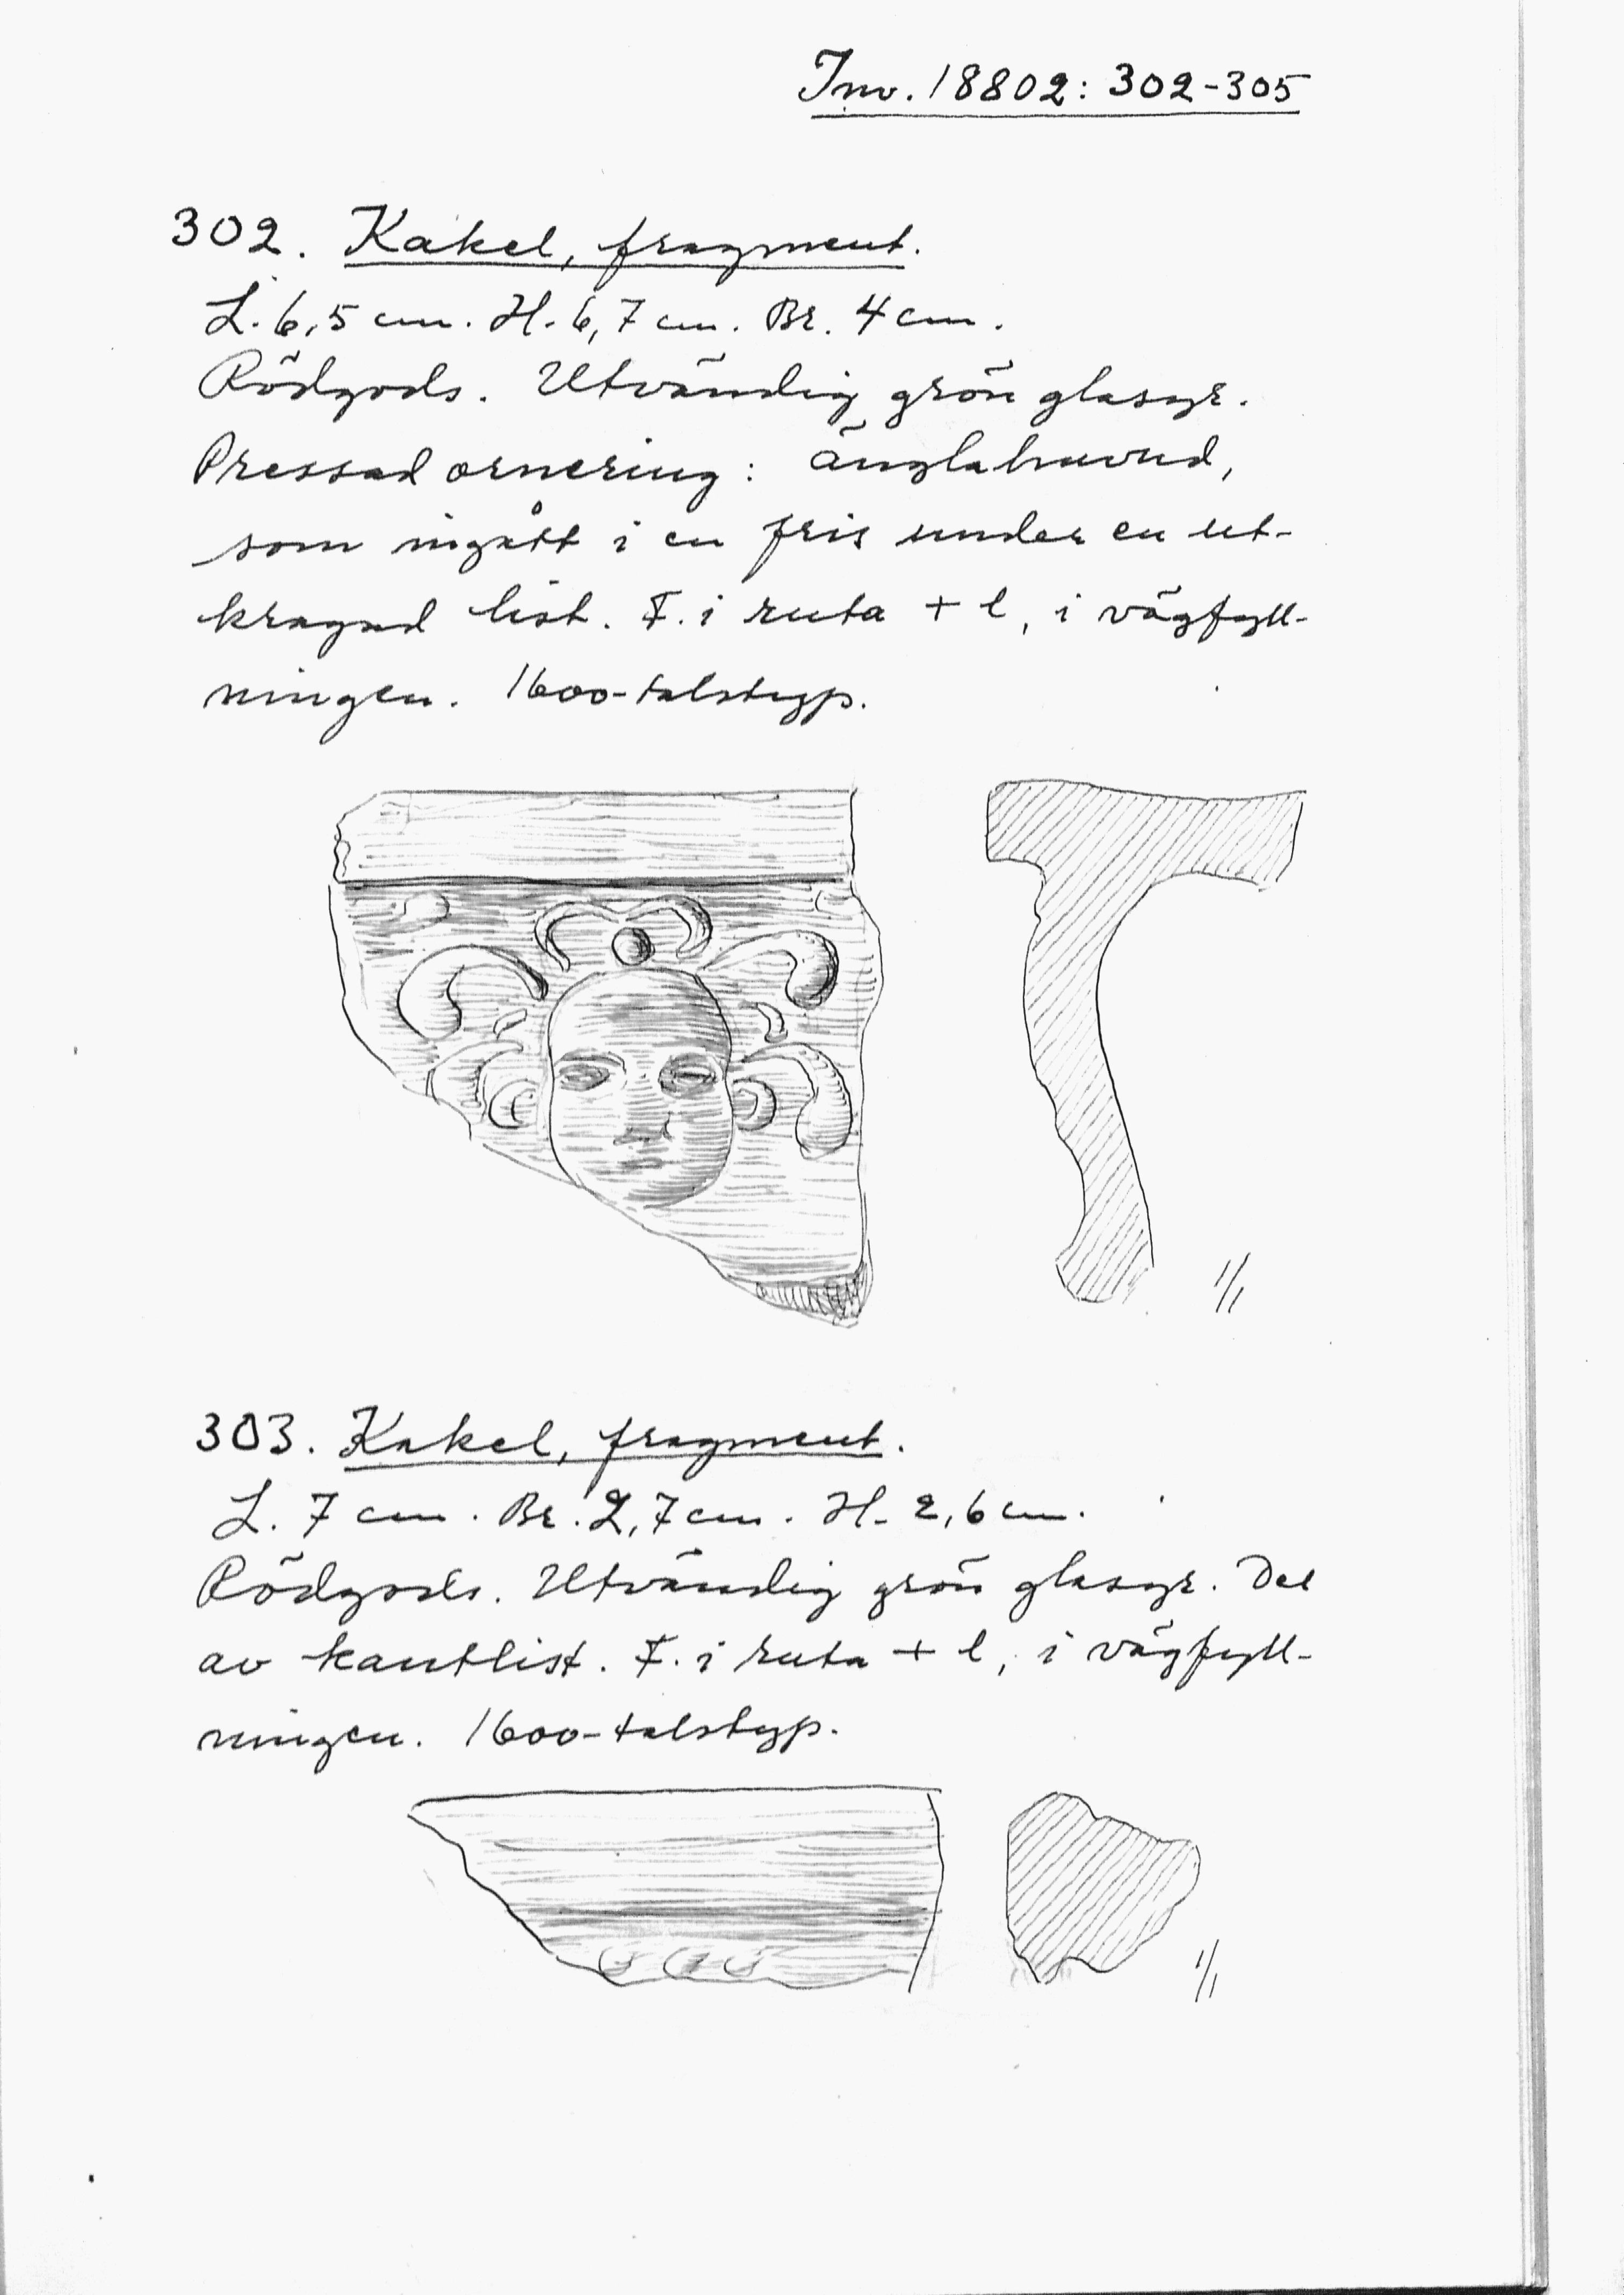 Inv. 18802: 302-305
302. Kakel, fragment.
L. 6,5 cm. H. 6,7 cm. Br. 4 cm.
Rödgods. Utvändig grön glasyr.
Pressad ornering: änglahuvud,
som ingått i en fris under en ut-
kragad list. F. i ruta + l, i vägfyll-
ningen. 1600-talstyp.
1/1
303. Kakel, fragment.
L. 7 cm. Br. 2,7 cm. H. 2,6 cm.
Rödgods. Utvändig grön glasyr. Del
av kantlist. F. i ruta + l, i vägfyll-
ningen. 1600-talstyp.
1/1